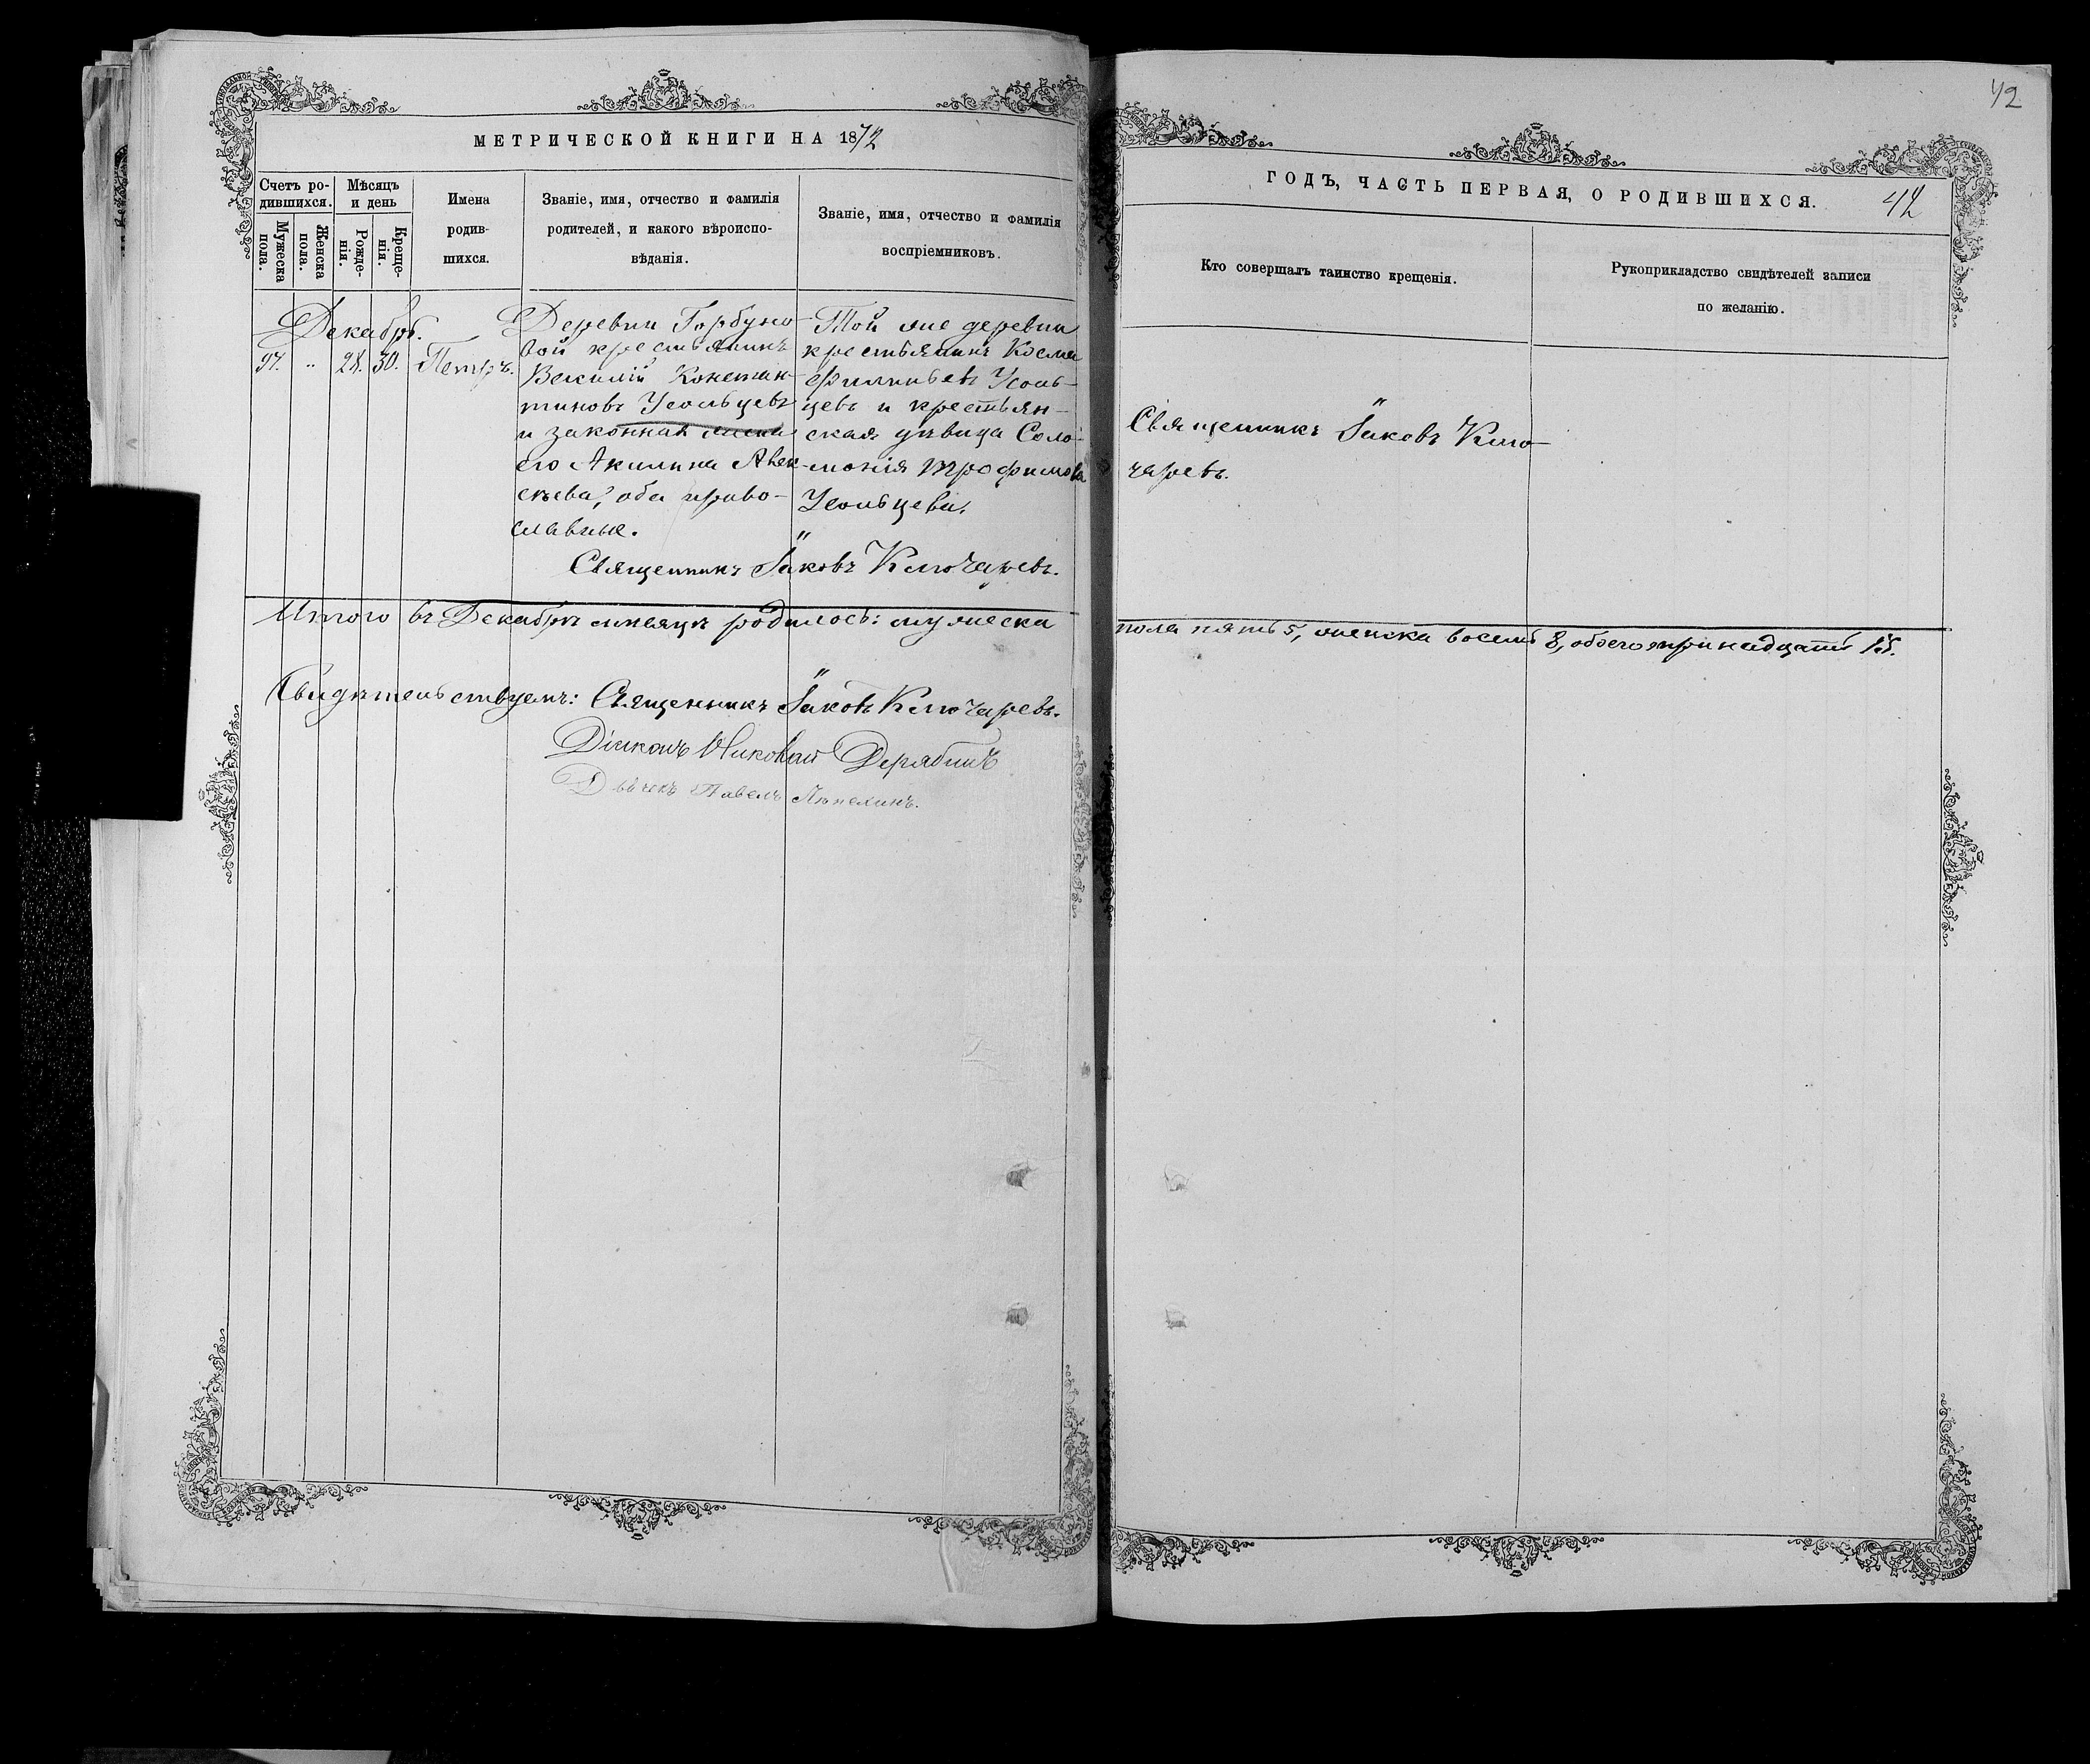 42
МЕТРИЧЕСКОЙ КНИГИ НА 1872
ГОДЪ, ЧАСТЬ ПЕРВАЯ, О РОДИВШИХСЯ.
42
Счетъ ро-
дившихся.
Мужеска
пола.
Женска
пола.
Мѣсяцъ
и день
Рожде-
нія.
Креще-
нія.
Имена
родив-
шихся.
Званіе, имя, отчество и фамилія
родителей, и какого вѣроиспо-
вѣданія.
Званіе, имя, отчество и фамилія
воспріемниковъ.
Кто совершалъ таинство крещенія.
Рукоприкладство свидѣтелей записи
по желанію.
Декабрь.
97. „ 28. 30. Петръ.
Деревни Горбуно-
вой крестьянинъ
Василій Констан-
тиновъ Усольцевъ
и законная жена
его Акилина Алек-
сѣева, оба право-
славные.
Той же деревни
крестьянинъ Косма
Филипьевъ Усоль-
цевъ и крестьян-
ская дѣвица Соло-
монія Трофимова
Усольцева.
Священникъ Іаковъ Ключаревъ.
Священникъ Іаковъ Клю-
чаревъ.
Итого въ Декабрѣ мѣсяцѣ родилось: мужеска
пола пять 5, женска восемь 8, обоего тринадцать 13.
Свидѣтельствуемъ: Священникъ Іаковъ Ключаревъ.
Діаконъ Николай Дерябинъ
Дьячекъ Павелъ